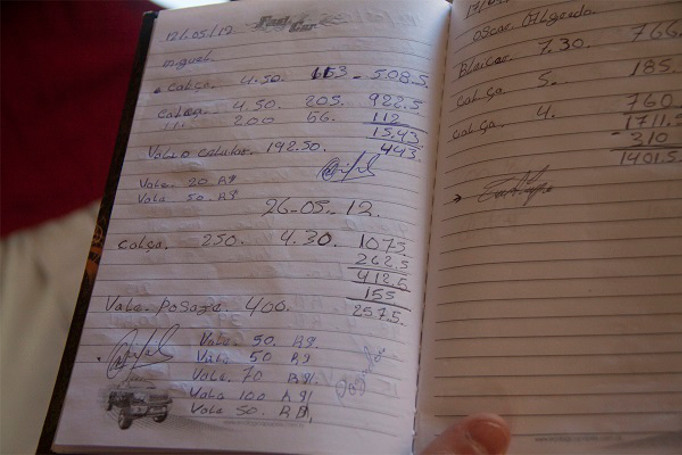 12/05/12
Fast Car
Miguel.
calça. 4.50. 113 - 508.5
calça. 4.50. 205. 922.5
2.00 56. 112
15.43
Vale o celular. 192.50. 443.
Vale. 20 R$
Vale 50 R$
26-05-12.
calça. 250. 4.30. 1075.
262.5
412.5
155
Vale. Posage. 400. 257.5.
Vale. 50. R$
Vale 50 R$
Vale. 70 R$
Vale 100 R$
Vale 50. R$
17/0
Oscar Obligado.
Blaicer. 7.30. 766
calça 5. 185.
calça. 4. 760
1711.5
- 310
1401.5